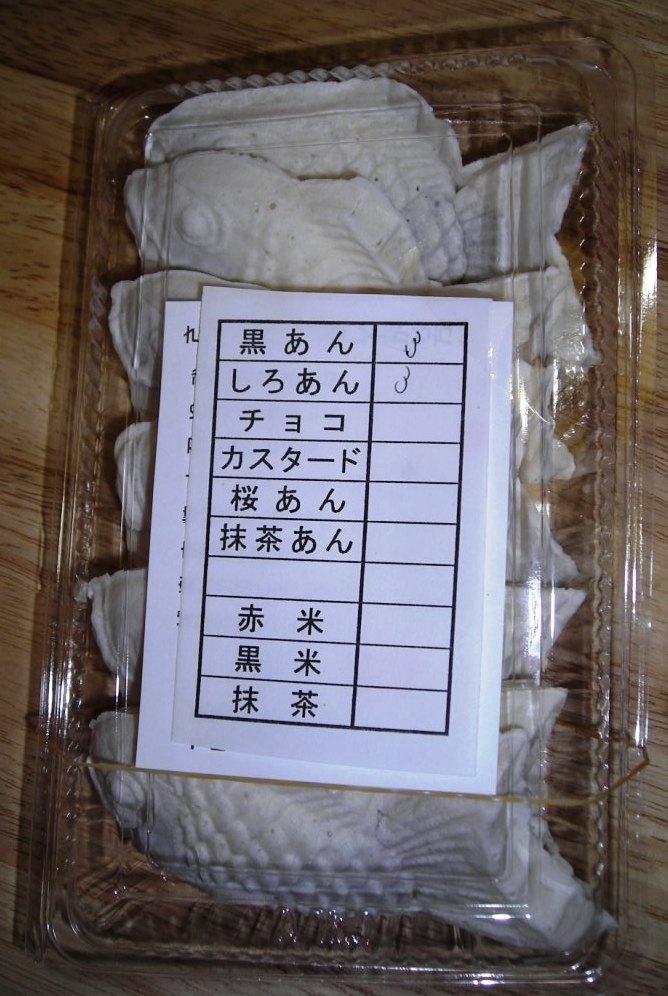 黒あん 3
しろあん 3
チョコ
カスタード
桜あん
抹茶あん
赤米
黒米
抹茶